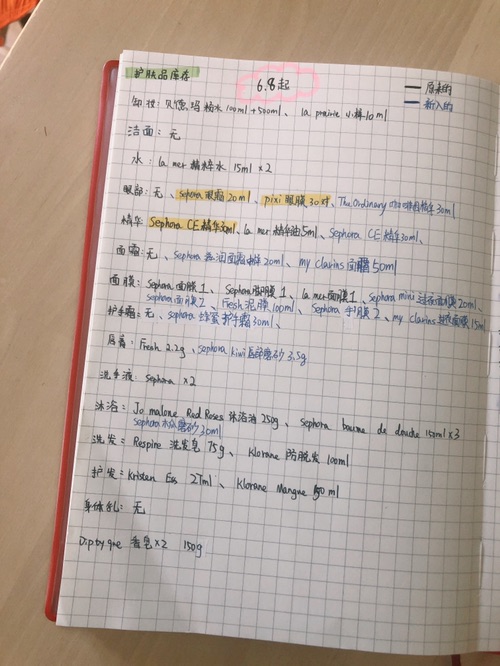 护肤品库存
6.8起
— 原来的
— 新入的
卸妆：贝德玛粉水100ml+500ml、la prairie 小样10ml
洁面：无
水：la mer 精粹水 15ml ×2
眼部：无、sephora眼霜20ml、pixi眼膜30对、The Ordinary 咖啡因精华30ml
精华：Sephora CE精华30ml、la mer精华油5ml、Sephora CE精华30ml、
面霜：无、Sephora 滋润面霜20ml、my clarins 面霜50ml
面膜：Sephora面膜1、Sephora眼膜1、la mer面膜1、sephora mini 过夜面膜20ml、
sephora面膜2、Fresh泥膜100ml、Sephora手膜2、my clarins 过夜面膜15ml
护手霜：无、sephora 蜂蜜护手霜30ml、
唇膏：Fresh 2.2g、sephora kiwi唇部磨砂3.5g
洗手液：Sephora ×2
沐浴：Jo malone Red Roses 沐浴油 250g、Sephora baume de douche 150ml×3
sephora 磨砂30ml
洗发：Respire 洗发皂 75g、Klorane 防脱发 100ml
护发：Kristen Ess 27ml、Klorane Mangue 150ml
身体乳：无
Diptyque 香皂×2 150g